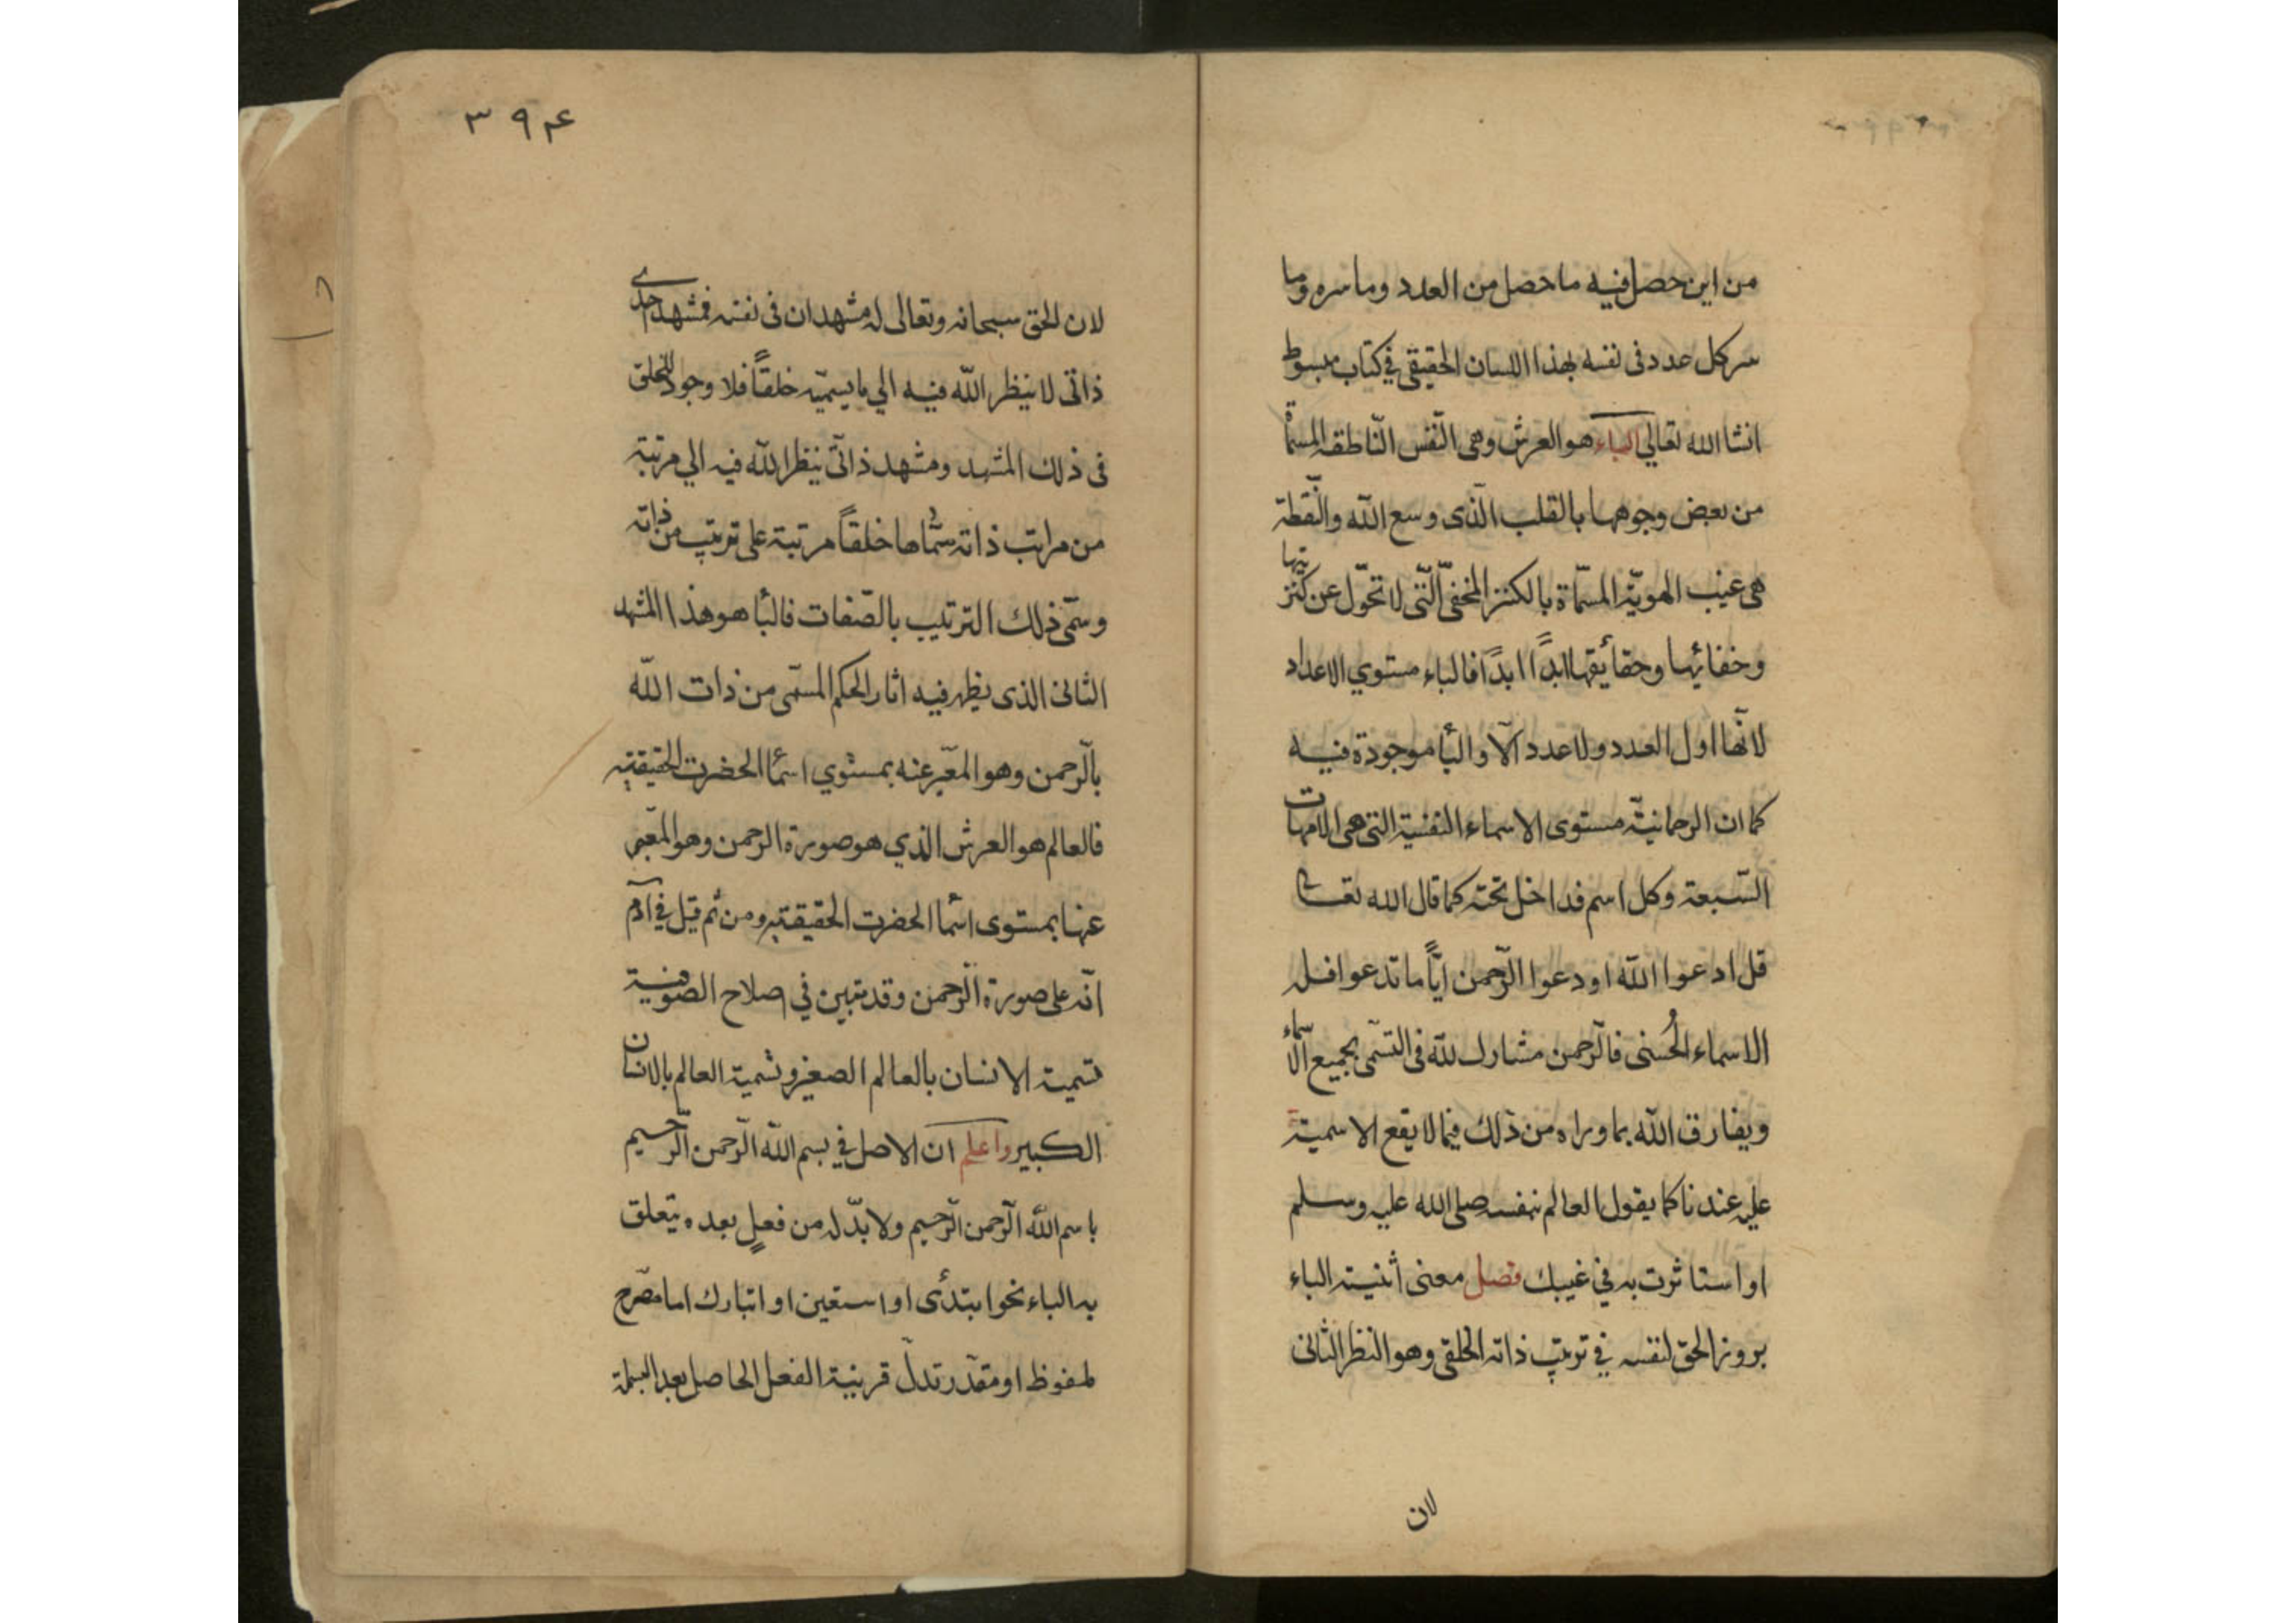 من اين حصل فيه ما حصل من العدد وما سره وما
سر كل عدد فى نفسه بهذا اللسان الحقيقى في كتاب مبسوط
انشا الله تعالي الباء هو العرش وهى النّفس النّاطقه المسمّاة
من بعض وجوهها بالقلب الّذى وسع الله والنّقطة
هى غيب الهويّة المسمّاة بالكنز المخفىّ الّتى لا تحوّل عن كنزيتها
وخفائها وحقائقها ابدًا ابدًا فالباء مستوي الاعداد
لانّها اول العدد ولا عدد الّا والبأ موجودة فيه
كما ان الرحمانيّة مستوى الاسماء النفسية التى هى الامهات
السّبعة وكل اسم فداخل تحته كما قال الله تعالى
قل ادعوا الله او دعوا الرّحمن ايًّا ما تدعوا فله
الاسماء الحُسنى فالرّحمن مشارك لله فى التسمّى بجميع الاسماء
ويفارق الله بما وراه من ذلك فيما لا يقع الاسمية
عليه عندنا كما يقول العالم بنفسه صلى الله عليه وسلم
او استاثرت به في غيبك فصل معنى اثنينية الباء
بروز الحق لنفسه في ترتيب ذاته الخلقى وهو النظر الثانى
لان
٣٩۴
لان الحق سبحانه وتعالى له مشهدان فى نفسه فمشهد احدي
ذاتى لا ينظر الله فيه الي ما يسميّه خلقًا فلا وجود للخلق
فى ذلك المشهد ومشهد ذاتّى ينظر الله فيه الي مرتبة
من مراتب ذاته سمّاها خلقًا مرتبة على ترتيب من ذاته
وسمّى ذلك الترتيب بالصّفات فالبأ هو هذا المشهد
الثانى الذى يظهر فيه اثار الحكم المسمّى من ذات الله
بالّرحمن وهو المعّبر عنه بمستوي اسمأ الحضرت الحقيقيه
فالعالم هو العرش الذي هو صورة الرحمن وهو المعّبر
عنها بمستوى اسمأ الحضرت الحقيقيه ومن ثم قيل في آدم
انّه على صورة الّرحمن وقد تبين في اصلاح الصوفية
تسمية الانسان بالعالم الصغير وتسمية العالم بالانسان
الكبير واعلم ان الاصل في بسم الله الّرحمن الرّحيم
باسم الله الّرحمن الرّحيم ولا بدّ له من فعلٍ بعده يتعلق
به الباء نحو ابتدأى او استعين او اتبارك اما مصّرح
ملفوظ او مقدّر تدلّ قرينية الفعل الحاصل بعد البسملة